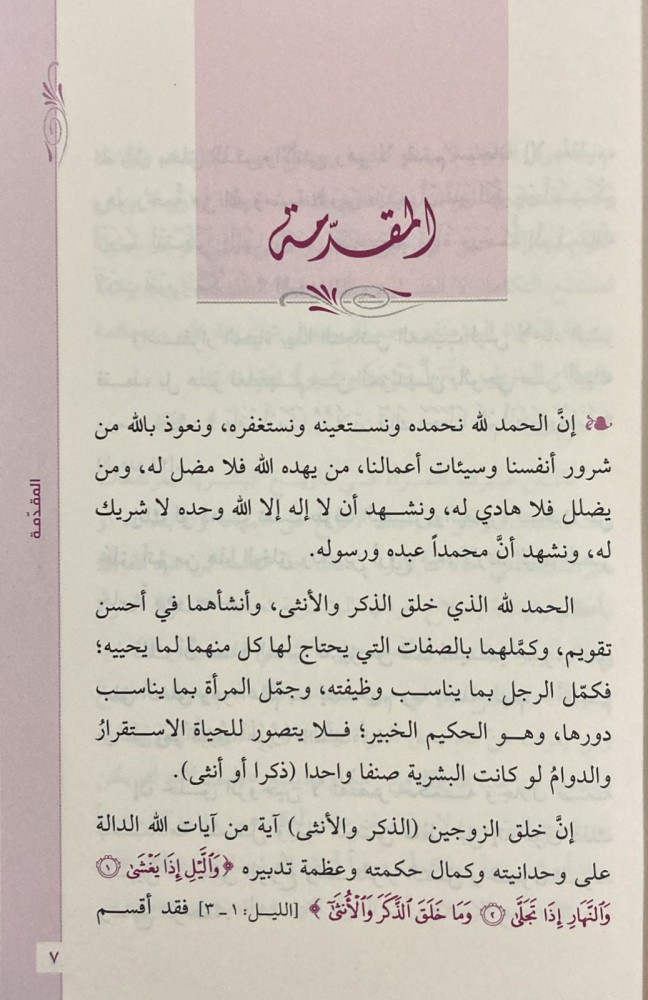 المقدّمة
إنَّ الحمد لله نحمده ونستعينه ونستغفره، ونعوذ بالله من
شرور أنفسنا وسيئات أعمالنا، من يهده الله فلا مضل له، ومن
يضلل فلا هادي له، ونشهد أن لا إله إلا الله وحده لا شريك
له، ونشهد أنَّ محمداً عبده ورسوله.
الحمد لله الذي خلق الذكر والأنثى، وأنشأهما في أحسن
تقويم، وكمَّلهما بالصفات التي يحتاج لها كل منهما لما يحييه؛
فكمّل الرجل بما يناسب وظيفته، وجمّل المرأة بما يناسب
دورها، وهو الحكيم الخبير؛ فلا يتصور للحياة الاستقرارُ
والدوامُ لو كانت البشرية صنفا واحدا (ذكرا أو أنثى).
إنَّ خلق الزوجين (الذكر والأنثى) آية من آيات الله الدالة
على وحدانيته وكمال حكمته وعظمة تدبيره ﴿وَٱلَّيۡلِ إِذَا يَغۡشَىٰ ١
وَٱلنَّهَارِ إِذَا تَجَلَّىٰ ٢ وَمَا خَلَقَ ٱلذَّكَرَ وَٱلۡأُنثَىٰٓ﴾ [الليل: ١ - ٣] فقد أقسم
المقدّمة
٧